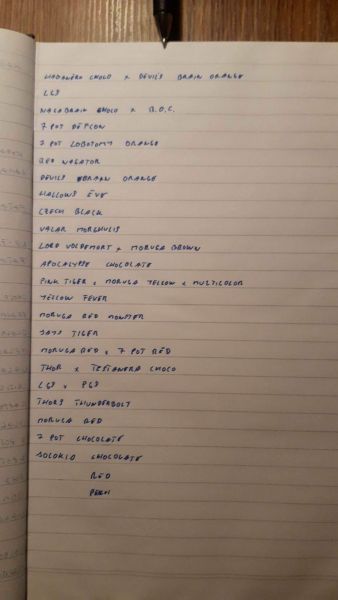 HABANERO CHOCO x DEVILS BRAIN ORANGE
LGS
NAGABRAIN CHOCO x B.O.C.
7 POT DEFCON
7 POT LOBOTOMY ORANGE
RED NAGATOR
DEVILS BRAIN ORANGE
HALLOWS EVE
CZECH BLACK
VALAR MORGHULIS
LORD VOLDEMORT x MORUGA BROWN
APOCALYPSE CHOCOLATE
PINK TIGER x MORUGA YELLOW x MULTICOLOR
YELLOW FEVER
MORUGA RED MONSTER
JAYS TIGER
MORUGA RED x 7 POT RED
THOR x TESTANERA CHOCO
LGS x PGS
THORS THUNDERBOLT
MORUGA RED
7 POT CHOCOLATE
JOLOKIA CHOCOLATE
RED